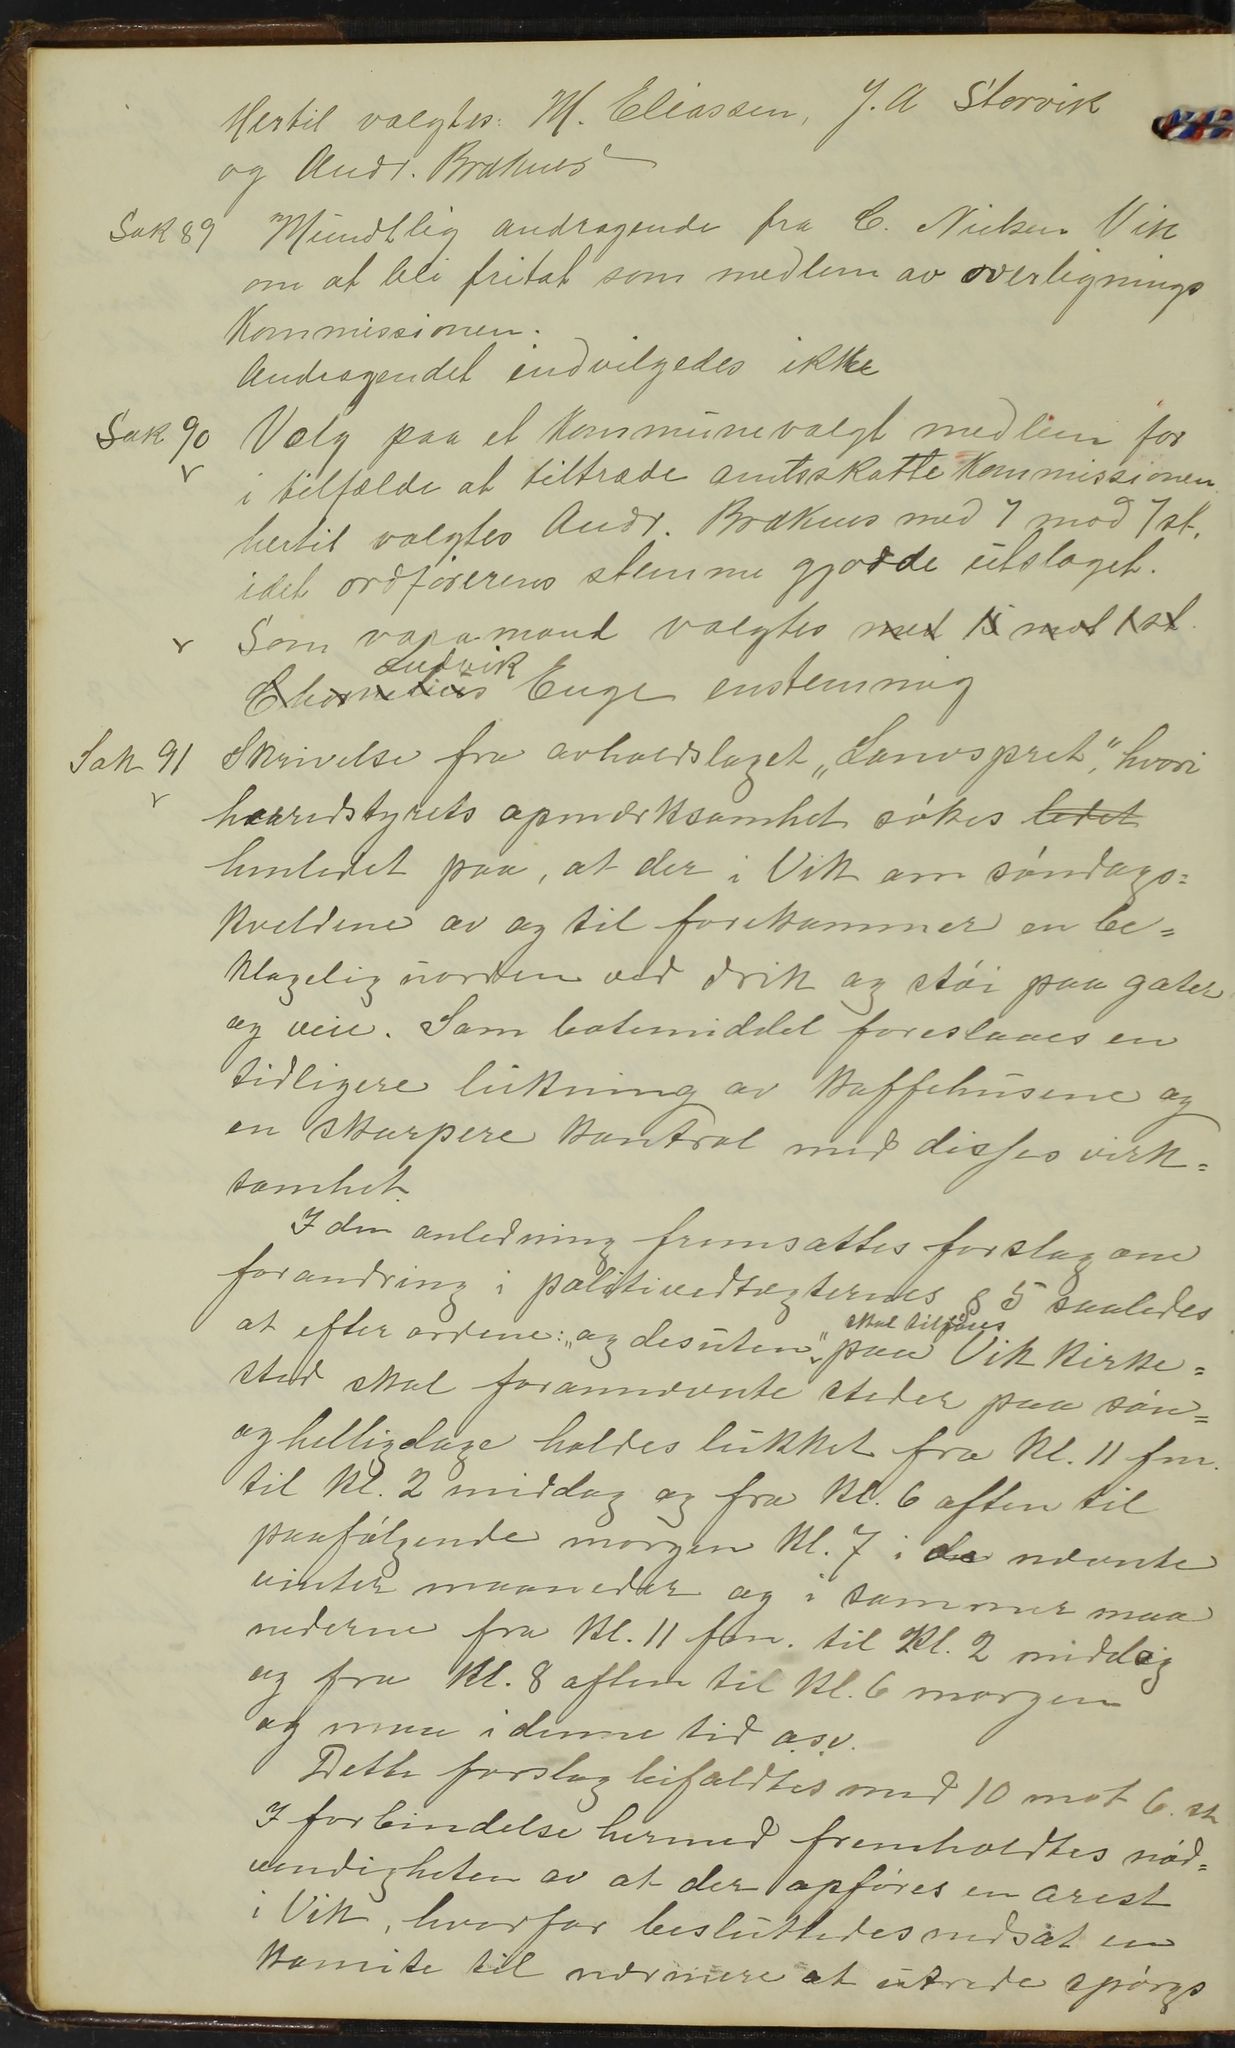 Hertil valgtes: M. Eliassen, J. A Storvik
og Andr. Bræknes
Sak 89 Mundtlig andragende fra C. Nielsen Vik
om at bli fritat som medlem av overlignings
Kommissionen.
Andragendet indvilgedes ikke
Sak 90 Valg paa et Kommunevalgt medlem for
i tilfælde at tiltræde amtsskatte Kommissionen
hertil valgtes Andr. Bræknes med 7 mod 7 st.
idet ordförerens stemme gjorde utslaget.
Som varamand valgtes med 15 mot 1 st.
Ludvik
Chornelius Enge enstemmig
Sak 91 Skrivelse fra avholdslaget „Landspret", hvori
herredstyrets opmerksomhet søkes ledet
henledet paa, at der i Vik om søndags=
kveldene av og til forekommer en be=
klagelig uorden ved drik og støi paa gater
og veie. Som botemiddel foreslaaes en
tidligere lukning av kaffehusene og
en skarpere kontrol med disses virk=
somhet.
I den anledning fremsattes forslag om
forandring i politivedtægternes § 5 saaledes
at efter ordene: „og desuten" skal tilføies
paa Vik kirke=
sted skal forannævnte steder paa søn=
og helligdage holdes lukket fra kl. 11 fm.
til kl. 2 middag og fra kl. 6 aften til
paafølgende morgen kl. 7 i de nævnte
vinter maaneder og i sommer maa
nederne fra kl. 11 fm. til kl. 2 middag
og fra kl. 8 aften til kl. 6 morgen
og maa i denne tid o.s.v.
Dette forslag bifaldtes med 10 mot 6. st
I forbindelse hermed fremholdtes nød=
vendigheten av at der opføres en arest
i Vik, hvorfor besluttedes nedsat en
komite til nærmere at utrede spørgs